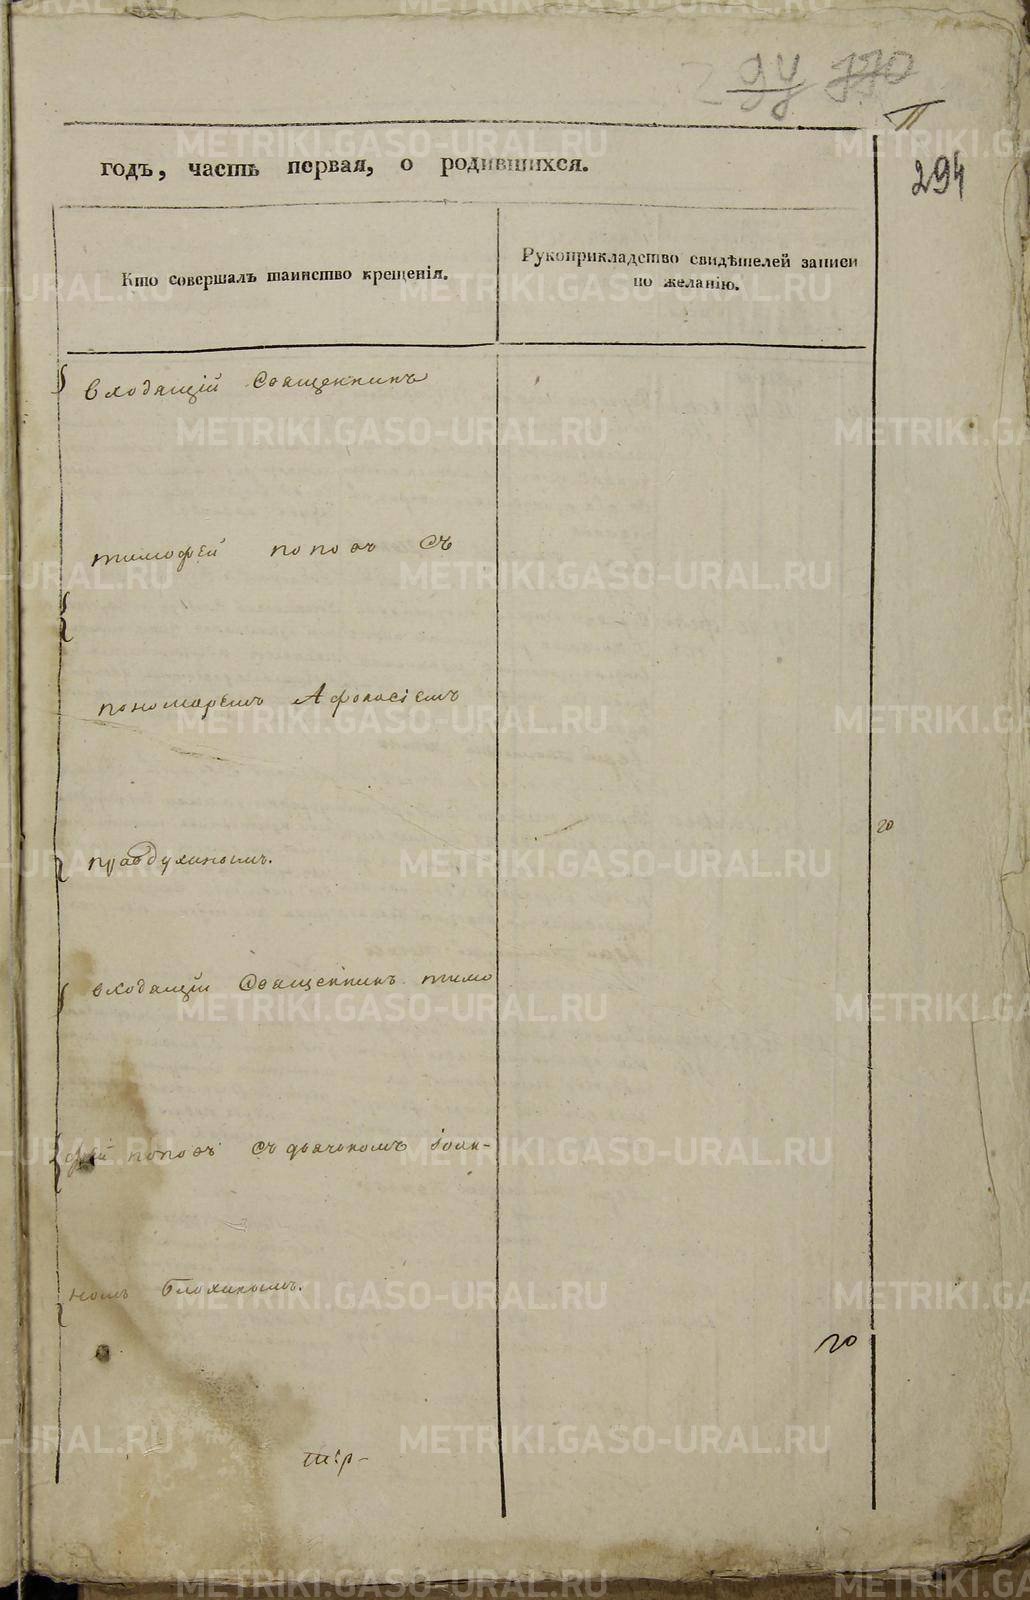 94 770
П
294
годъ, часть первая, о родившихся.
Кто совершалъ таинство крещенія.
Рукоприкладство свидѣтелей записи
по желанію.
входящій Священникъ
тимофей поповъ Съ
пономаремъ Афонасіемъ
правдухиномъ.
20
входящій Священникъ тимо
фей поповъ Съ дьячькомъ іоан-
номъ блохиномъ.
20
METRIKI.GASO-URAL.RU